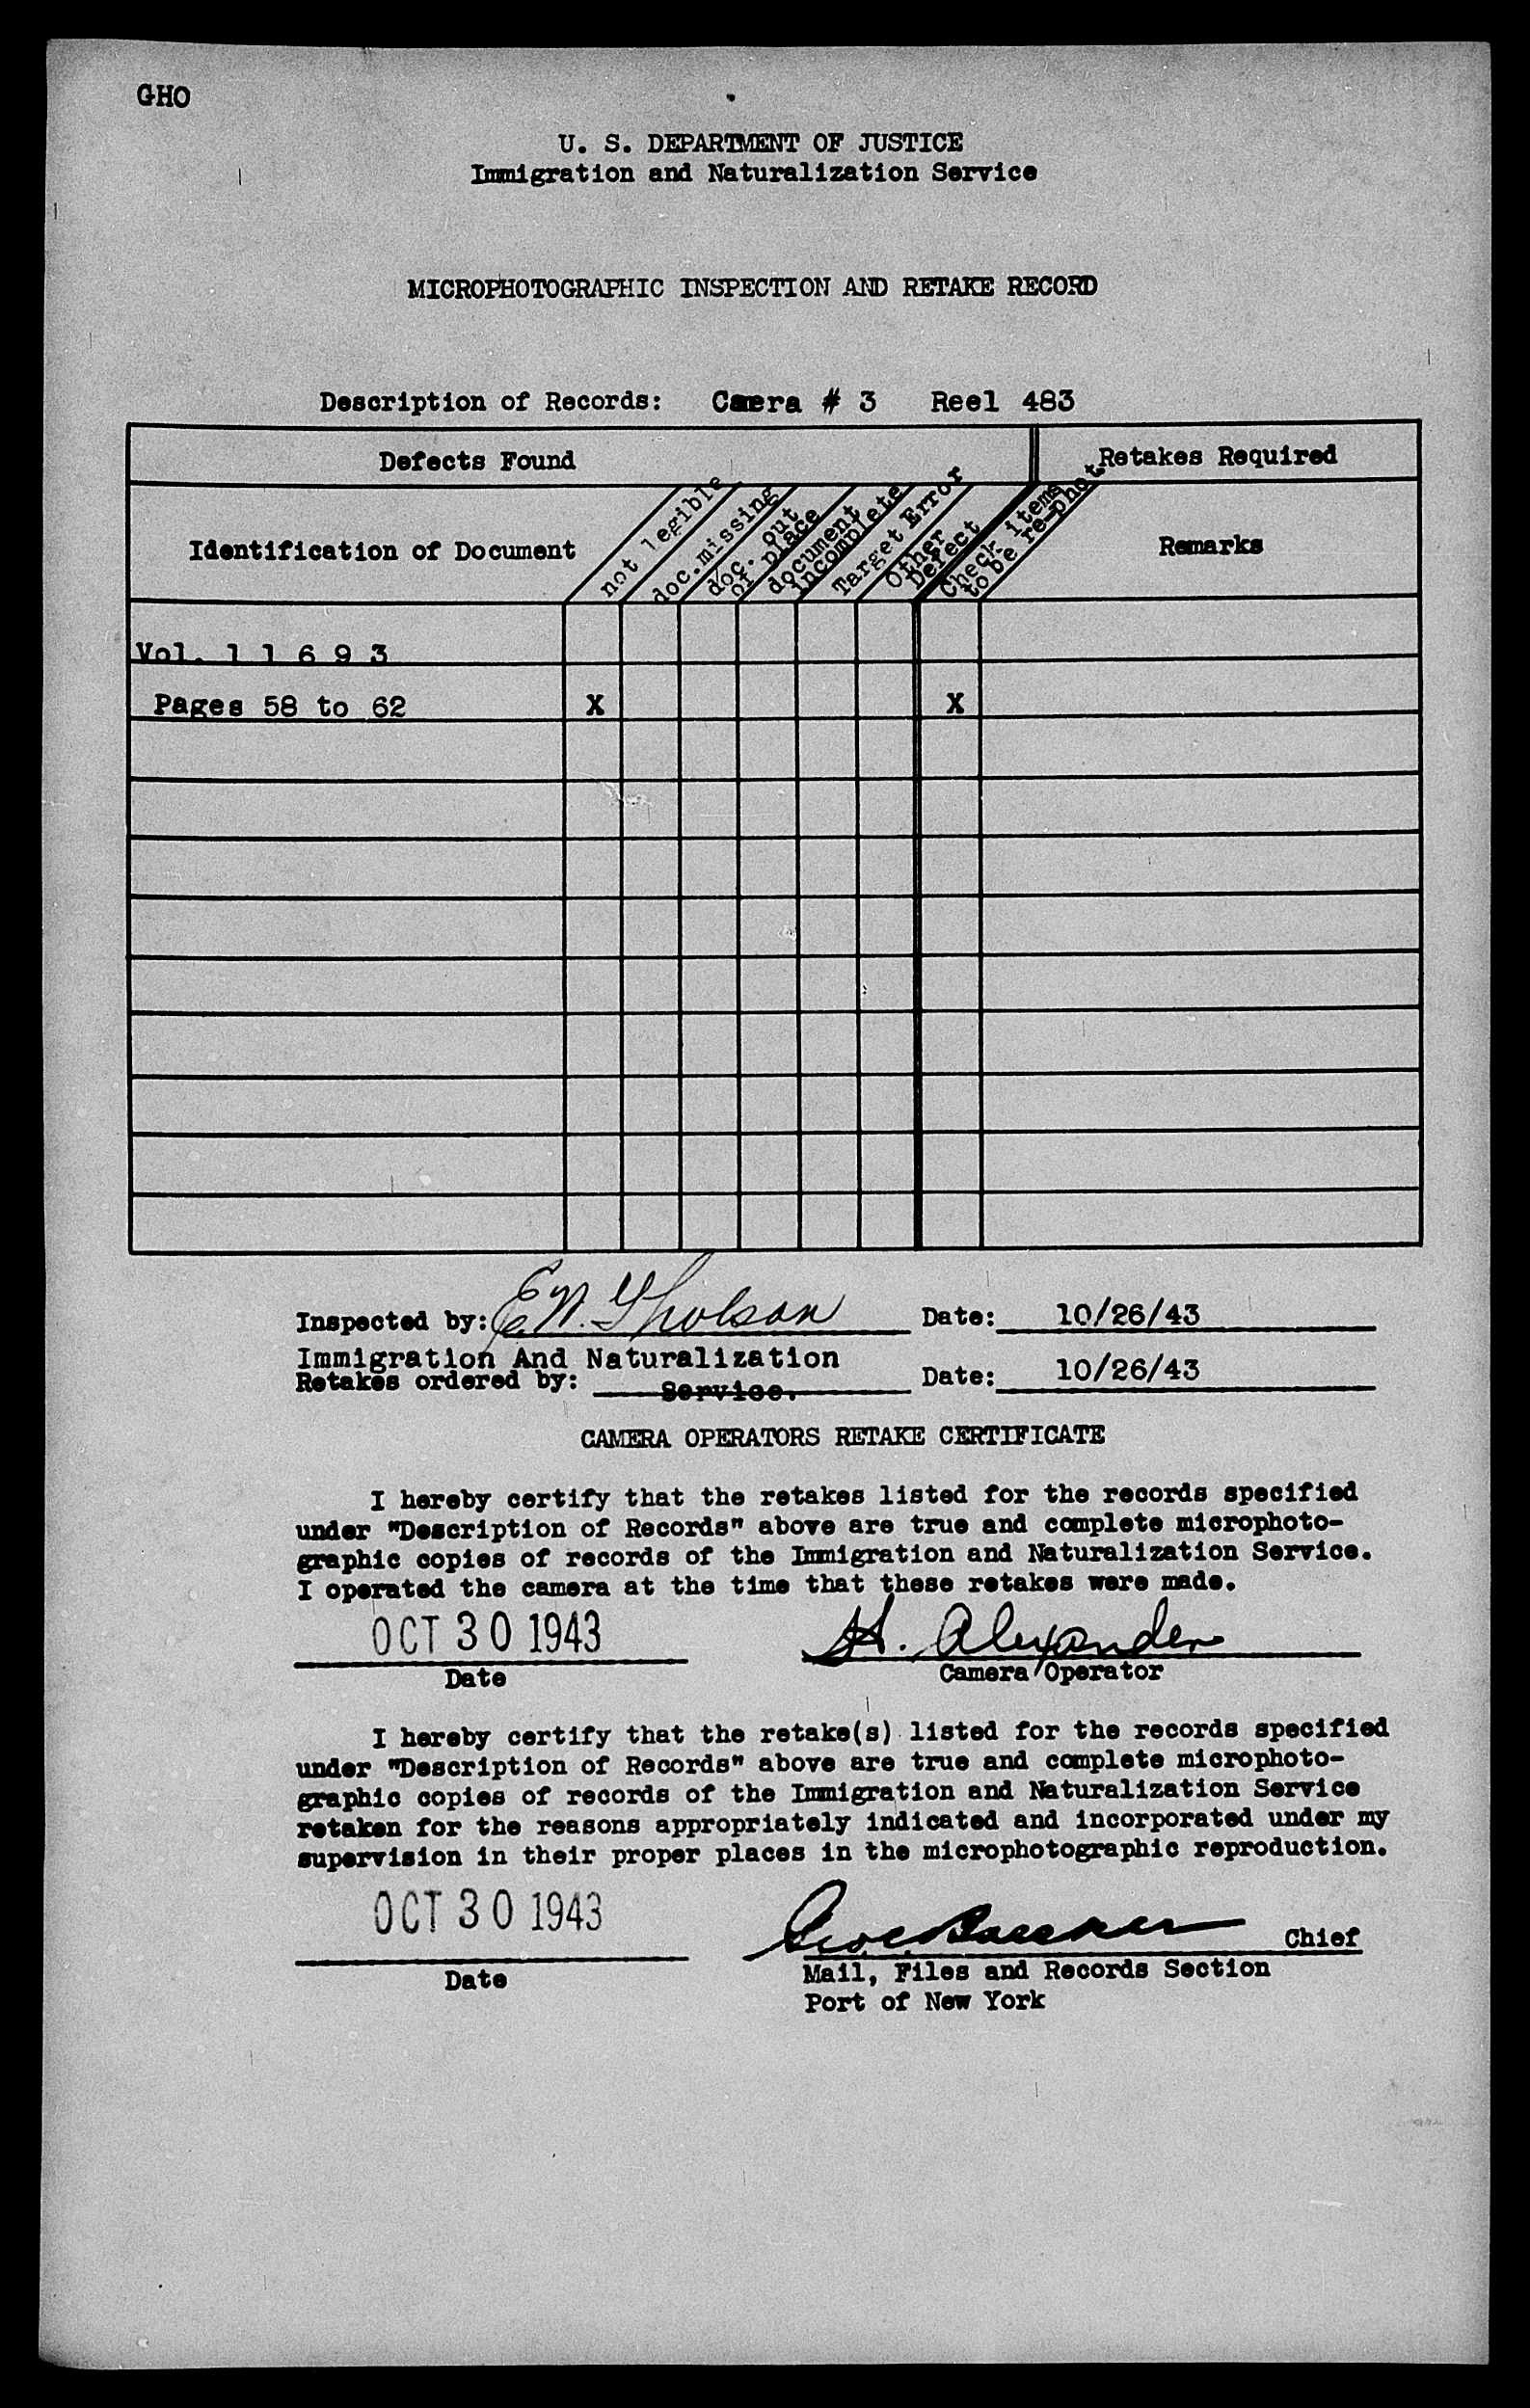 GHO
U. S. DEPARTMENT OF JUSTICE
Immigration and Naturalization Service
MICROPHOTOGRAPHIC INSPECTION AND RETAKE RECORD
Description of Records: Camera # 3 Reel 483
Defects Found
Retakes Required
Identification of Document
not legible
doc.missing
doc. out
of place
document
incomplete
Target Error
Other
Defect
Check items
to be re-phot.
Remarks
Vol. 1 1 6 9 3
Pages 58 to 62 X X
Inspected by: E. N. Gholson Date: 10/26/43
Immigration And Naturalization
Retakes ordered by: Service. Date: 10/26/43
CAMERA OPERATORS RETAKE CERTIFICATE
I hereby certify that the retakes listed for the records specified
under "Description of Records" above are true and complete microphoto-
graphic copies of records of the Immigration and Naturalization Service.
I operated the camera at the time that these retakes were made.
OCT 30 1943 H. Alexander
Date Camera Operator
I hereby certify that the retake(s) listed for the records specified
under "Description of Records" above are true and complete microphoto-
graphic copies of records of the Immigration and Naturalization Service
retaken for the reasons appropriately indicated and incorporated under my
supervision in their proper places in the microphotographic reproduction.
OCT 30 1943
Chief
Date Mail, Files and Records Section
Port of New York